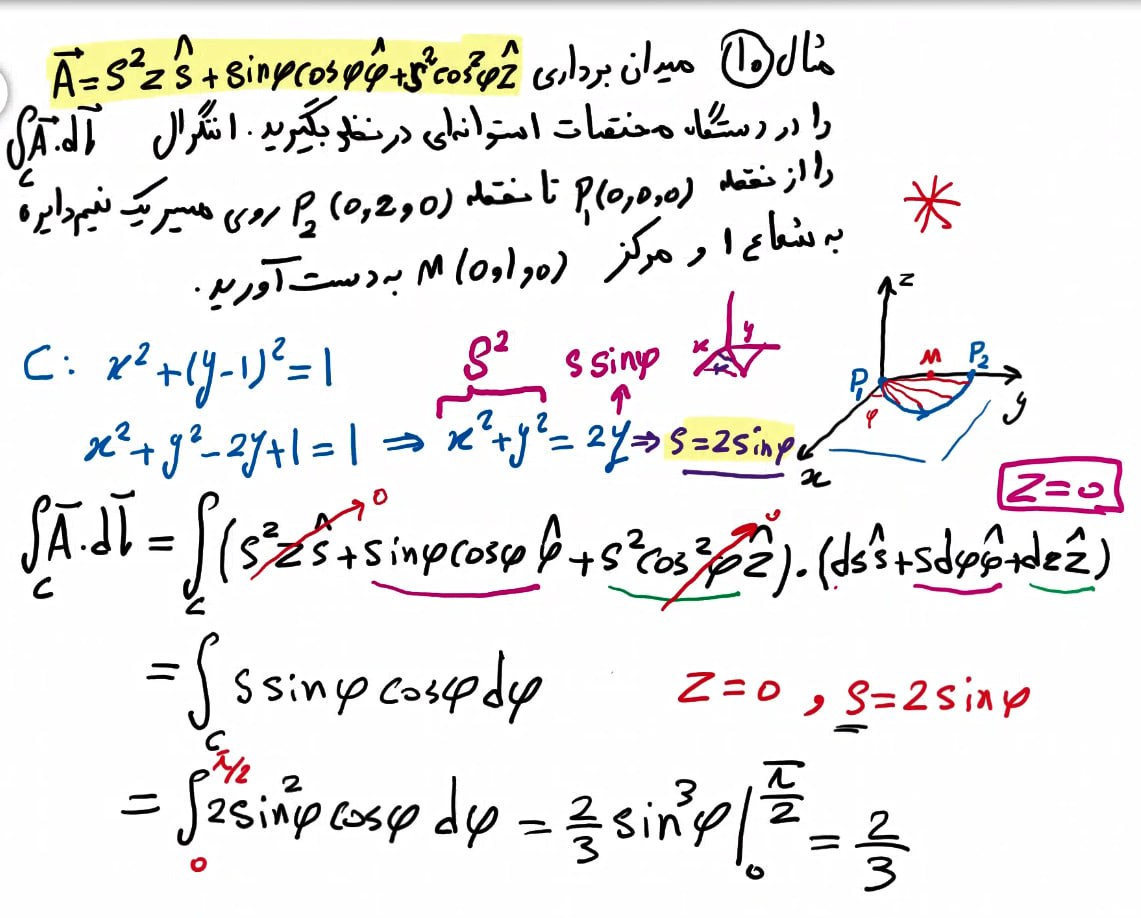 مثال ۱۰ میدان برداری A⃗ = S²z ŝ + sinφcosφ φ̂ + s²cos²φ ẑ
را در دستگاه مختصات استوانه‌ای در نظر بگیرید. انتگرال ∫_C A⃗.dl⃗
را از نقطه P₁(0,0,0) تا نقطه P₂(0,2,0) روی مسیر یک نیم دایره
به شعاع ۱ و مرکز M(0,1,0) به دست آورید.
*
z
P₁ M P₂
φ y
x
x y
C: x²+(y-1)²=1
S² s sinφ
x²+y²-2y+1=1 ⇒ x²+y²=2y ⇒ s=2sinφ
z=0
∫_C A⃗.dl⃗ = ∫_C (s²z ŝ + sinφcosφ φ̂ + s²cos²φ ẑ).(ds ŝ + sdφ φ̂ + dz ẑ)
0 0
= ∫_C s sinφ cosφ dφ z=0 , s=2sinφ
= ∫₀^{π/2} 2sin²φ cosφ dφ = 2/3 sin³φ |₀^{π/2} = 2/3